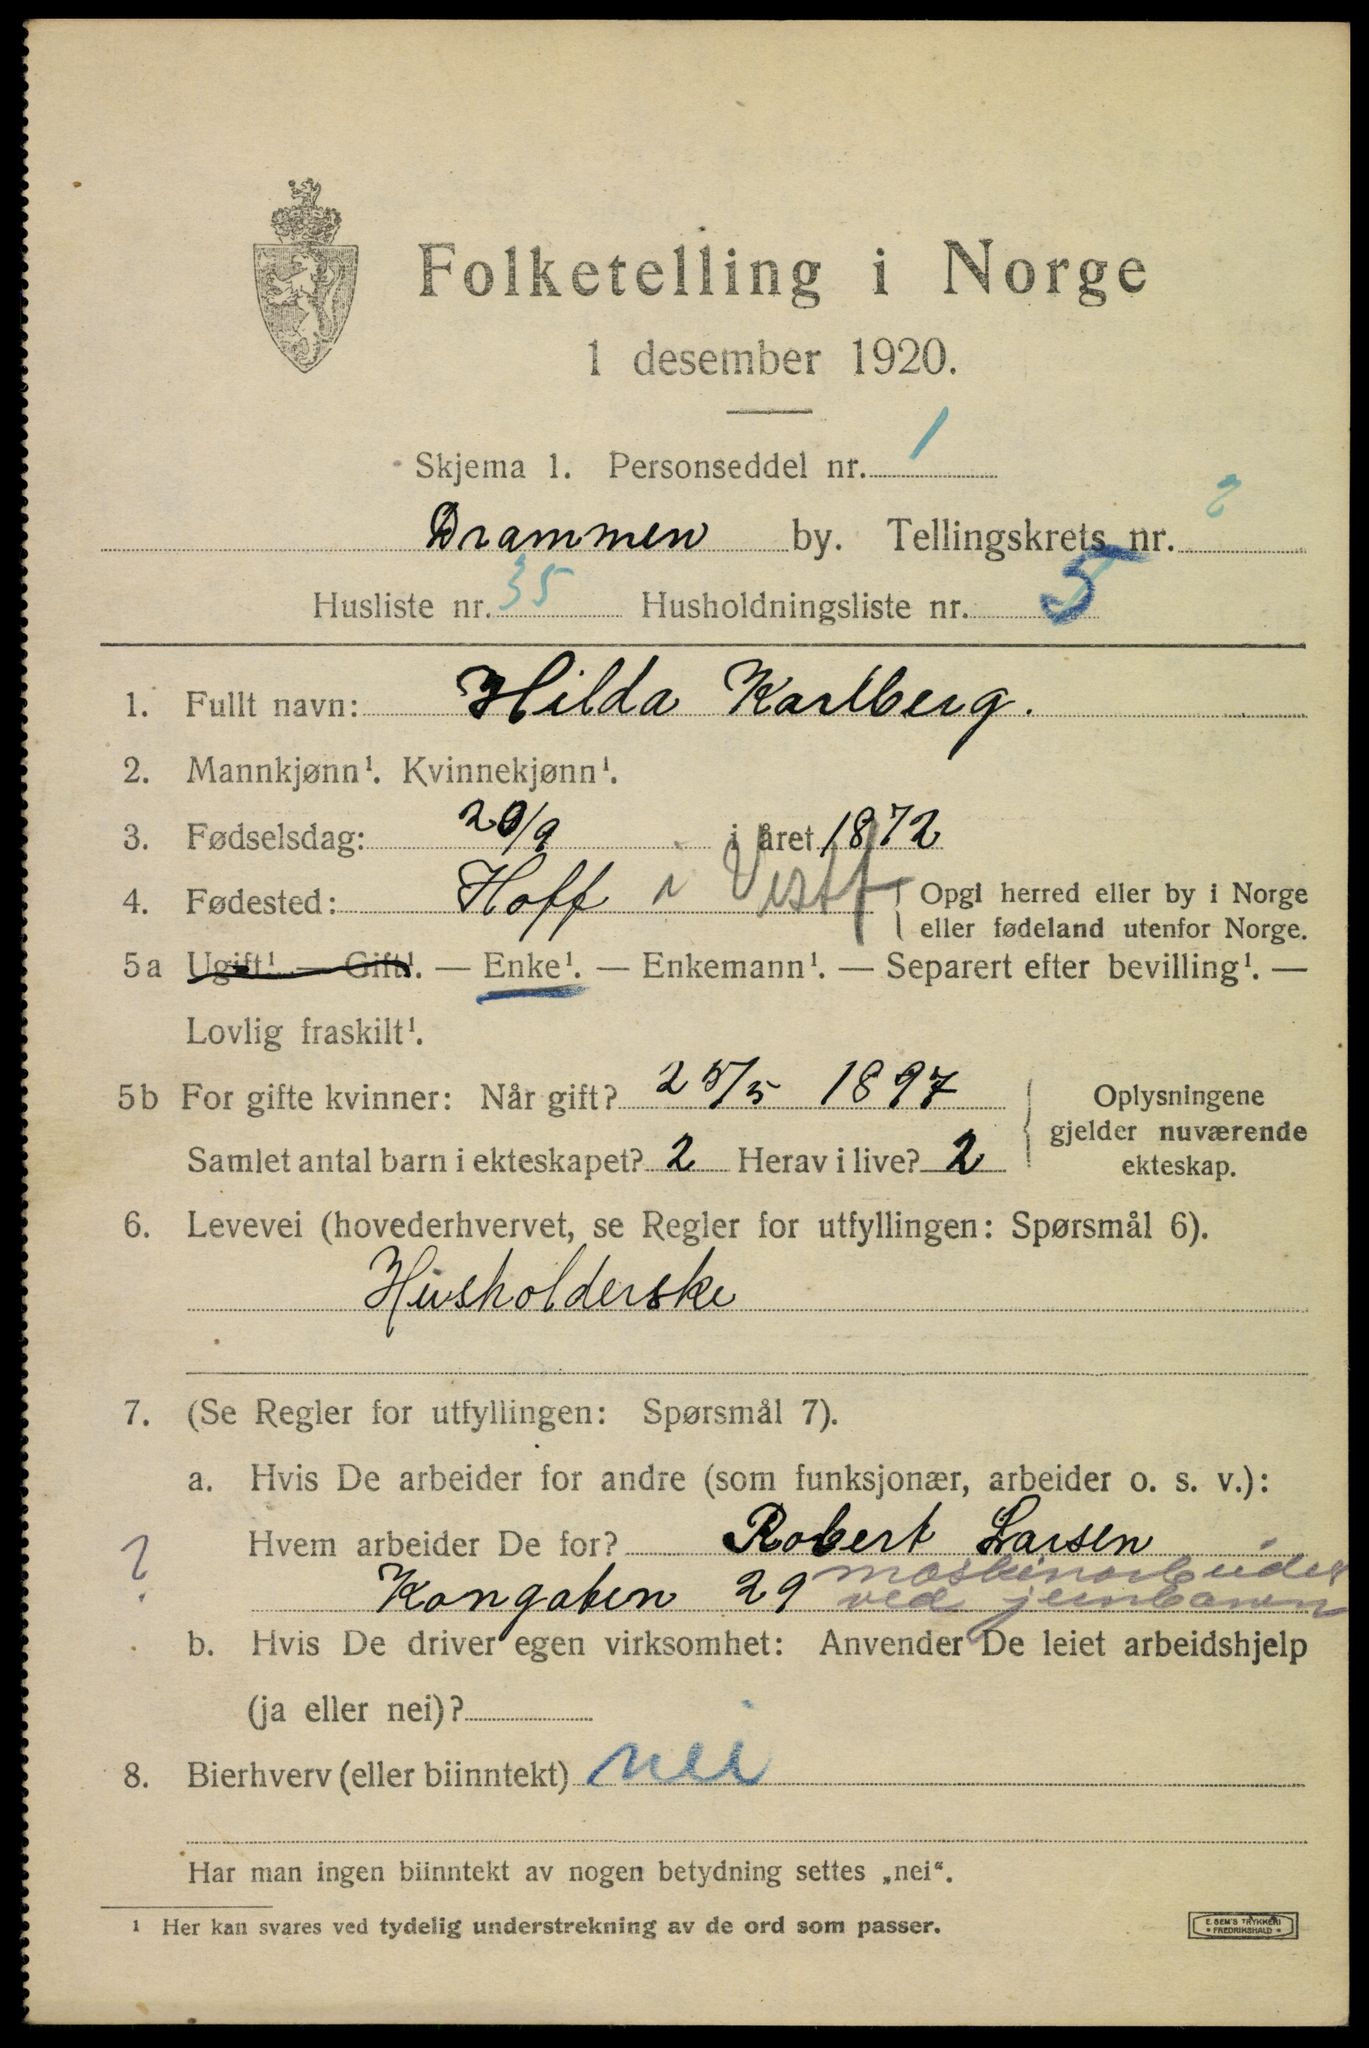 Folketelling i Norge
1 desember 1920.
Skjema 1. Personseddel nr. 1
Drammen by. Tellingskrets nr. 2
Husliste nr. 35 Husholdningsliste nr. 5
1. Fullt navn: Hilda Karlberg.
2. Mannkjønn¹. Kvinnekjønn¹.
3. Fødselsdag: 20/9 i året 1872
4. Fødested: Hoff i Vestf { Opgi herred eller by i Norge
eller fødeland utenfor Norge.
5a Ugift¹. — Gift¹. — Enke¹. — Enkemann¹. — Separert efter bevilling¹. —
Lovlig fraskilt¹.
5b For gifte kvinner: Når gift? 25/5 1897
Samlet antal barn i ekteskapet? 2 Herav i live? 2
Oplysningene
gjelder nuværende
ekteskap.
6. Levevei (hovederhvervet, se Regler for utfyllingen: Spørsmål 6).
Husholderske
7. (Se Regler for utfyllingen: Spørsmål 7).
a. Hvis De arbeider for andre (som funksjonær, arbeider o. s. v.):
Hvem arbeider De for? Robert Larsen
? Kongaten 29 maskinarbeider
ved jernbanen
b. Hvis De driver egen virksomhet: Anvender De leiet arbeidshjelp
(ja eller nei)?
8. Bierhverv (eller biinntekt) nei
Har man ingen biinntekt av nogen betydning settes „nei“.
¹ Her kan svares ved tydelig understrekning av de ord som passer.
E. SEM'S TRYKKERI
* FREDRIKSHALD *